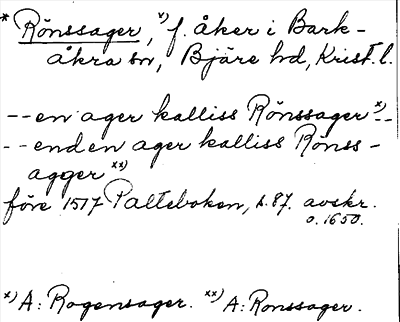 * Rönssager, x) f. åker i Bark-
åkra sn, Bjäre hd, Krist. l.
-- en ager kalliss Rönssager x) --
-- end en ager kalliss Rönss-
agger xx)
före 1517 Palteboken, s. 87. avskr.
o. 1650.
x) A: Rogensager. xx) A: Ronssager.